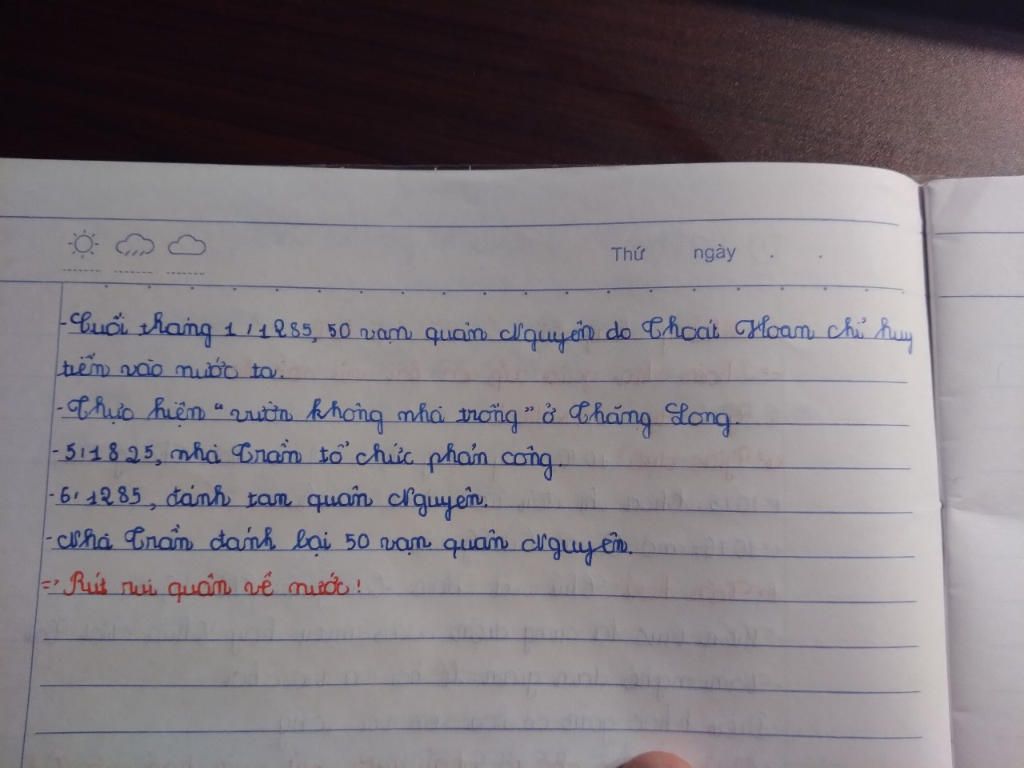 Thứ ngày . .
-Cuối tháng 1/1285, 50 vạn quân Nguyên do Thoát Hoan chỉ huy
tiến vào nước ta.
-Thực hiện "vườn không nhà trống" ở Thăng Long.
-5/1825, nhà Trần tổ chức phản công.
-6/1285, đánh tan quân Nguyên.
-Nhà Trần đánh bại 50 vạn quân Nguyên.
=> Rút rui quân về nước!